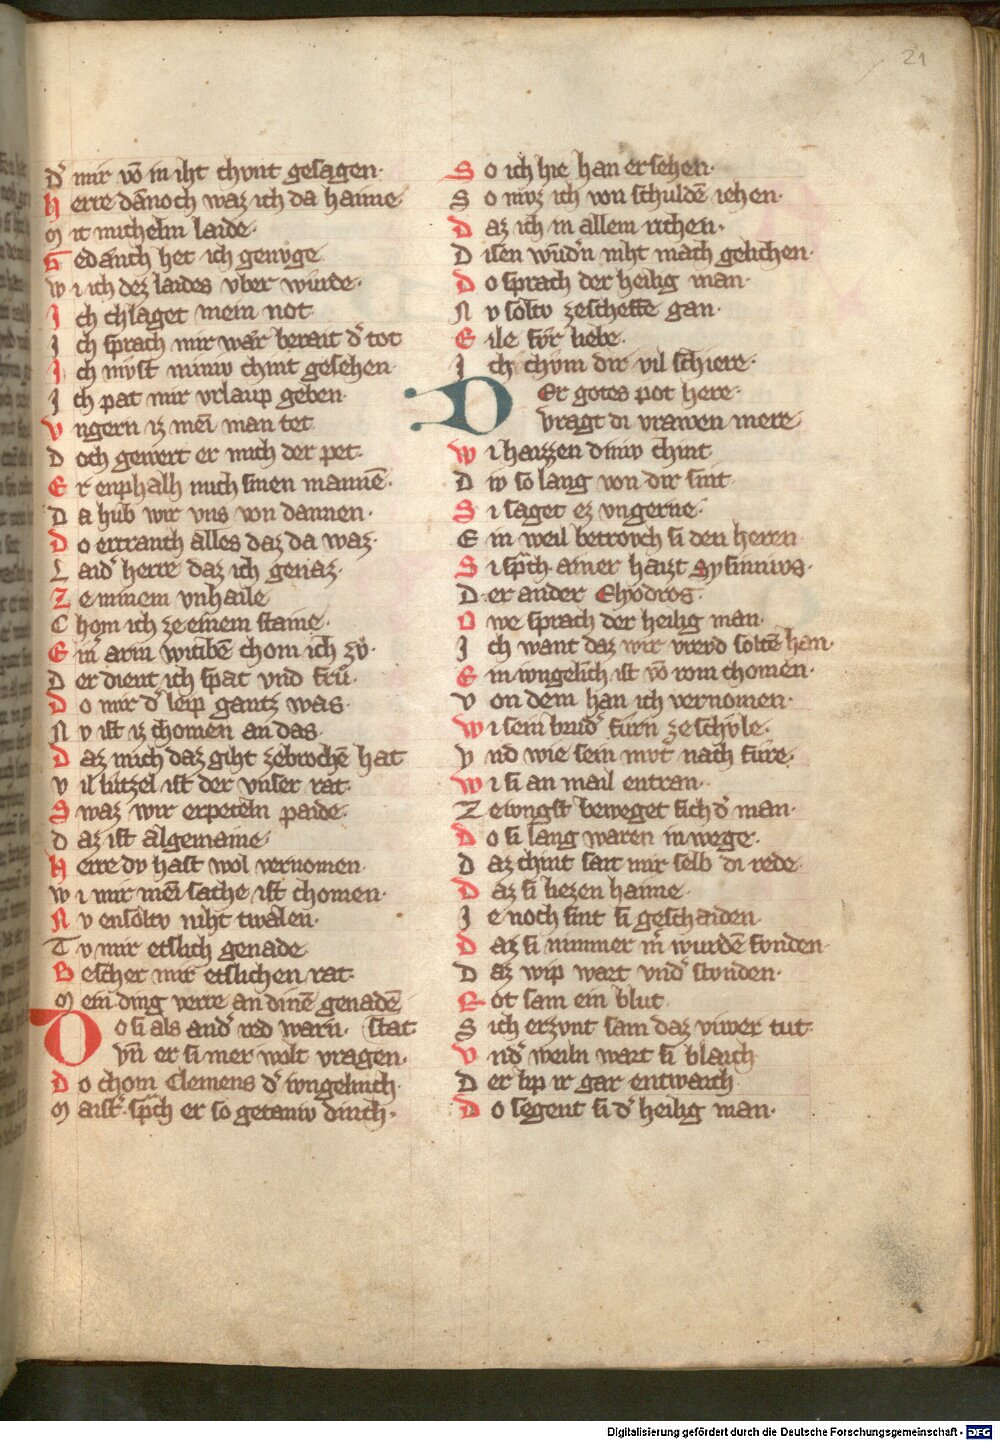 21
D͛ mir vō in iht chvnt gesagen·
H erre dānoch waz ich da haime·
M it michelm laide·
G edanch het ich genv̊ge
W i ich dez laides vber wurde·
I ch chlaget mein not
I ch sprach mir wær berait d͛ tot
I ch mvst miniv chint gesehen·
I ch pat mir vrlaup geben·
V ngern iz mei man tet
D och gewert er mich der pet·
E r enphalh mich sinen mannē·
D a hůb wir vns von dannen·
D o ertranch alles daz da waz·
L aid͛ herre daz ich genaz·
Z e minem vnhaile
C hom ich ze einem staine·
E in͛ arm witibē chom ich zv̊·
D er dient ich spat vnd frů·
D o mir d͛ leip gantz was·
N v ist iz chomen an das·
D az mich daz giht zebrochē hat
V il lutzel ist der vnser rat·
S waz wir erpeteln paide·
D az ist algemaine·
H erre dv hast wol vernomen·
W i mir mei sache ist chomen·
N v ensoltv niht twalen·
T v mir etslich genade
B escher mir etslichen rat·
M ein ding verre an dinē genadē
D o si als and͛ red warn· stat
vn̄ er si mer wolt vragen·
D o chom Clemens d͛ ivngelinch·
M aist͛· sp̄ch er so getaniv dinch·
S o ich hie han ersehen·
S o mvz ich von schuldē iehen·
D az ich in allem richen·
D isen wūd͛n niht mach gelichen·
D o sprach der heilig man·
N v soltv zescheffe gan·
E ile fvr liebe·
I ch chvm dir vil schiere·
D Er gotes pot here·
vragt di vrawen mere
W i haizzen diniv chint
D iv so lang von dir sint·
S i saget ez vngerne·
E in weil betrovch si den herrn
S i sp̄ch· ainer haizt Sysinnivs·
D er ander Chodros·
O we sprach der heilig man·
I ch want daz wir vrevd soltē han·
E in ivngelich ist vō rom chomen·
V on dem han ich vernomen·
W i sein brud͛ furn ze schvle·
V nd wie sein mvt͛ nach fure·
W i si an mail entran·
Z e ivngst beweget sich d͛ man·
D o si lang waren in wege·
D az chint sait mir selb di rede·
D az si liezen haime·
I e noch sint si geschaiden·
D az si nimmer m͛ wurdē fvnden·
D az wip wart vnd͛ stvnden·
R ot sam ein blut
S ich erzvnt sam daz viwer tut·
V nd͛ weiln wart si blaich
D er lip ir gar entwaich
D o segent si d͛ heilig man·
Digitalisierung gefördert durch die Deutsche Forschungsgemeinschaft - DFG